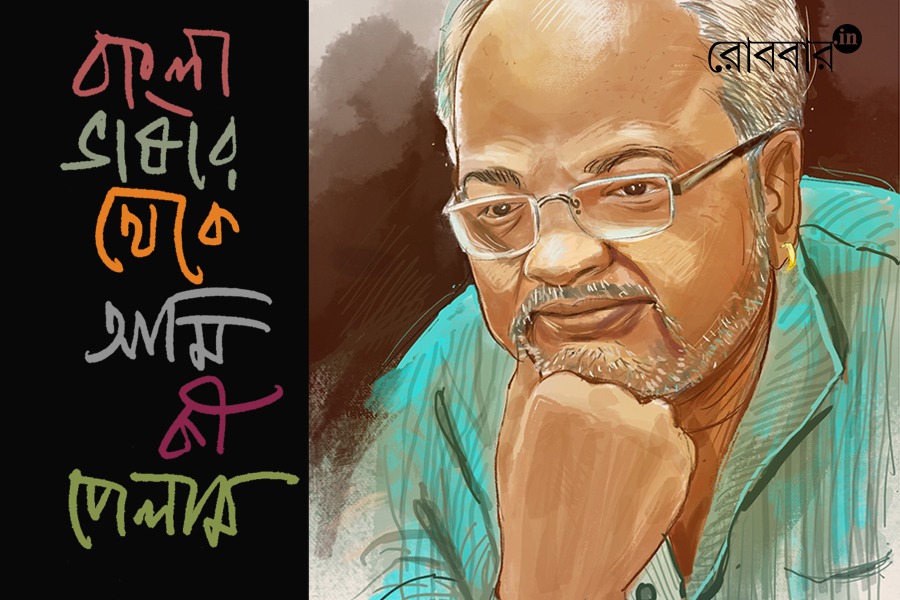 বাংলা
ভাষার
থেকে
আমি
কী
পেলাম
রোববার in